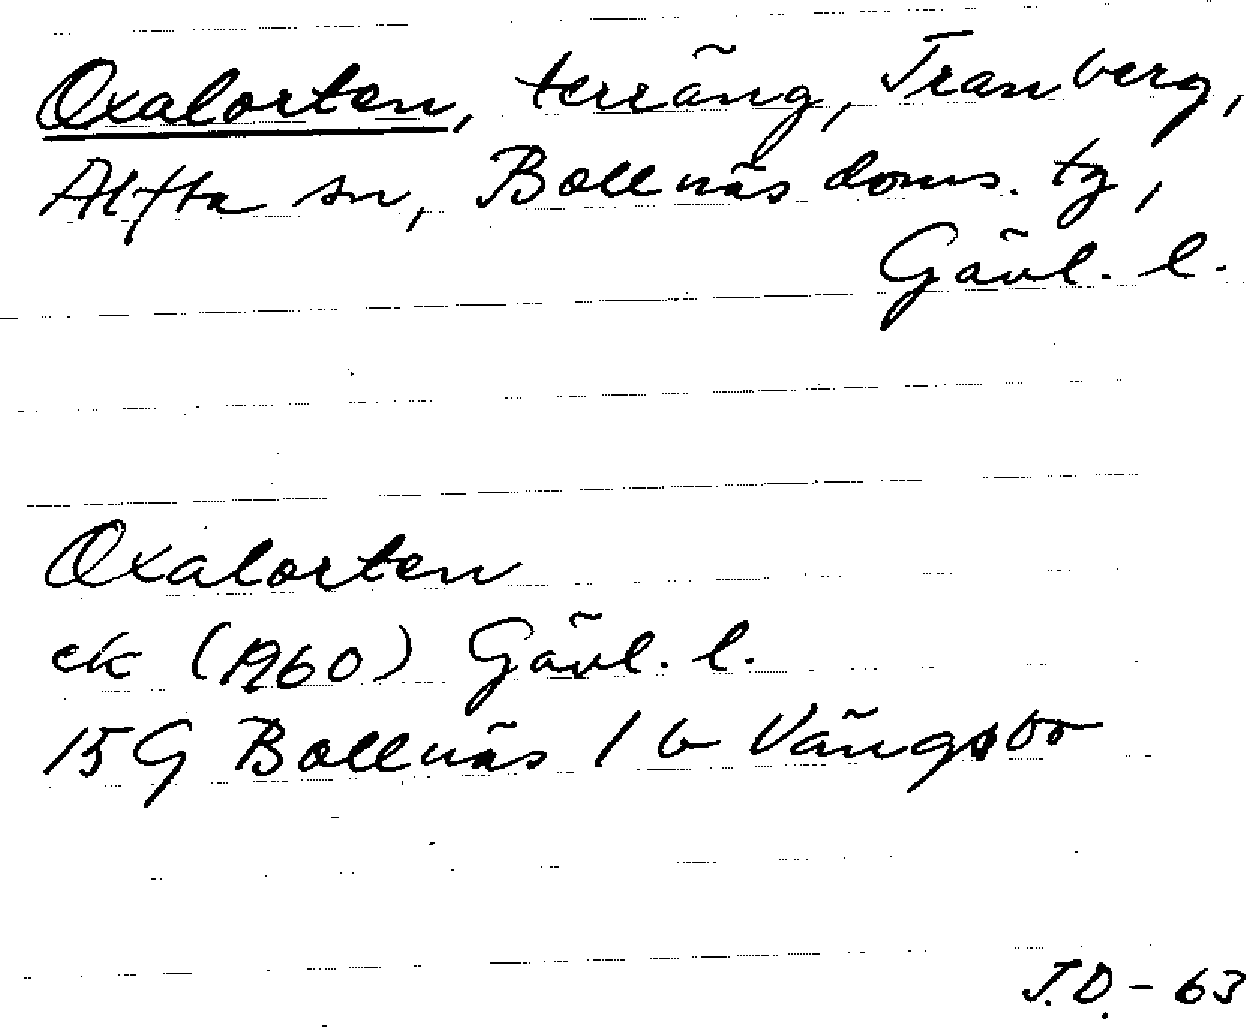 Oxalorten, terräng, Tranberg,
Alfta sn, Bollnäs doms. tg,
Gävl. l.
Oxalorten
ek (1960) Gävl. l.
15G Bollnäs 1 b Vängsbo
J.D. - 63